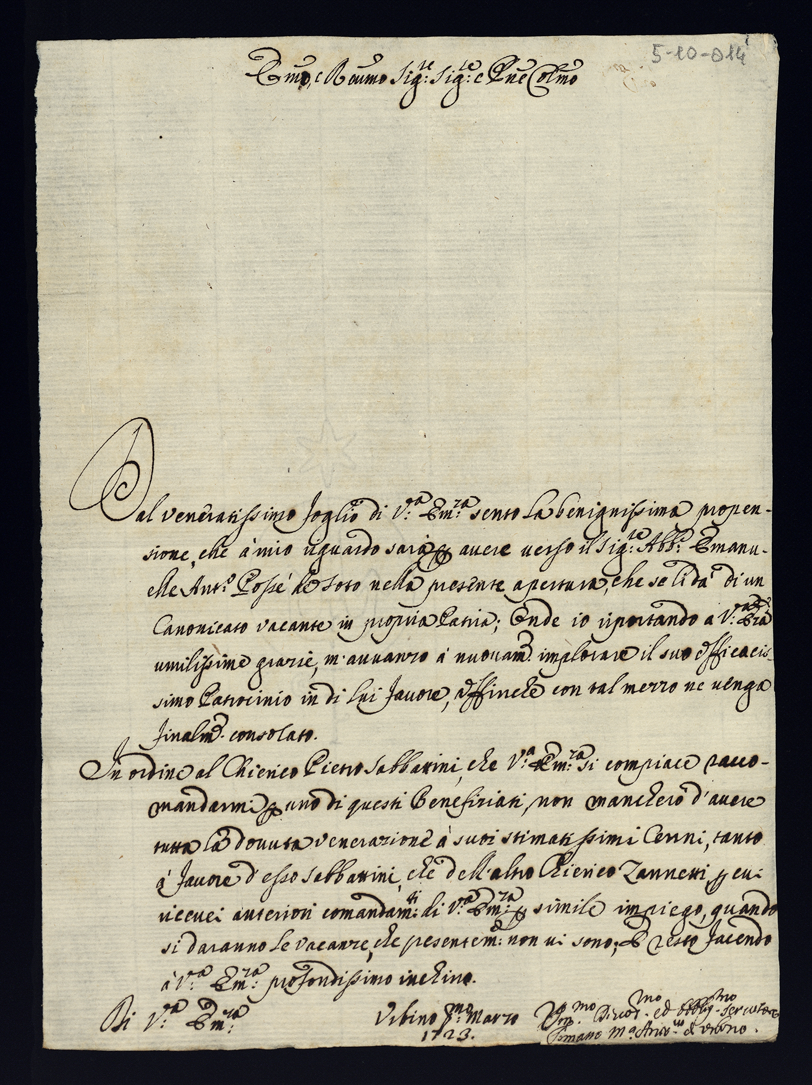 5-10-014
Emo, e Revmo Sig:re Sig:re e Pne Colmo
Dal veneratissimo foglio di V:ra Em:za sento la benignissima propen-
sione, che à mio riguardo sarà p avere verso il Sig:re Abb:e Emanu-
elle Ant:o de Soto nella presente apertura, che se li dà di un
Canonicato vacante in propria Patria; Onde io riportando a V:ra Em:za
umilissime grazie, m'avvanzo à nuovam:e implorare il suo efficacis-
simo Patrocinio in di lui favore, affinche con tal mezzo ne venga
finalm:e consolato.
In ordine al Chierico Pietro Sabbatini, che V:ra Em:za si compiace racco-
mandarmi p uno di questi Benefiziati, non mancherò d'avere
tutta la dovuta venerazione à suoi stimatissimi Cenni, tanto
à favore d'esso Sabbatini, che dell'altro Chierico Zannetti, p cui
ricevei anteriori comandam:ti di V:ra Em:za p simile impiego, quando
si daranno le vacanze, che presentem:e non vi sono; E resto facendo
à V:ra Em:za profondissimo inchino.
Di V:ra Em:za
Urbino p:mo Marzo
1723.
Um:mo Divot:mo ed Obblig:mo Servitore
Tomaso M:a Arciv:o d'Urbino.